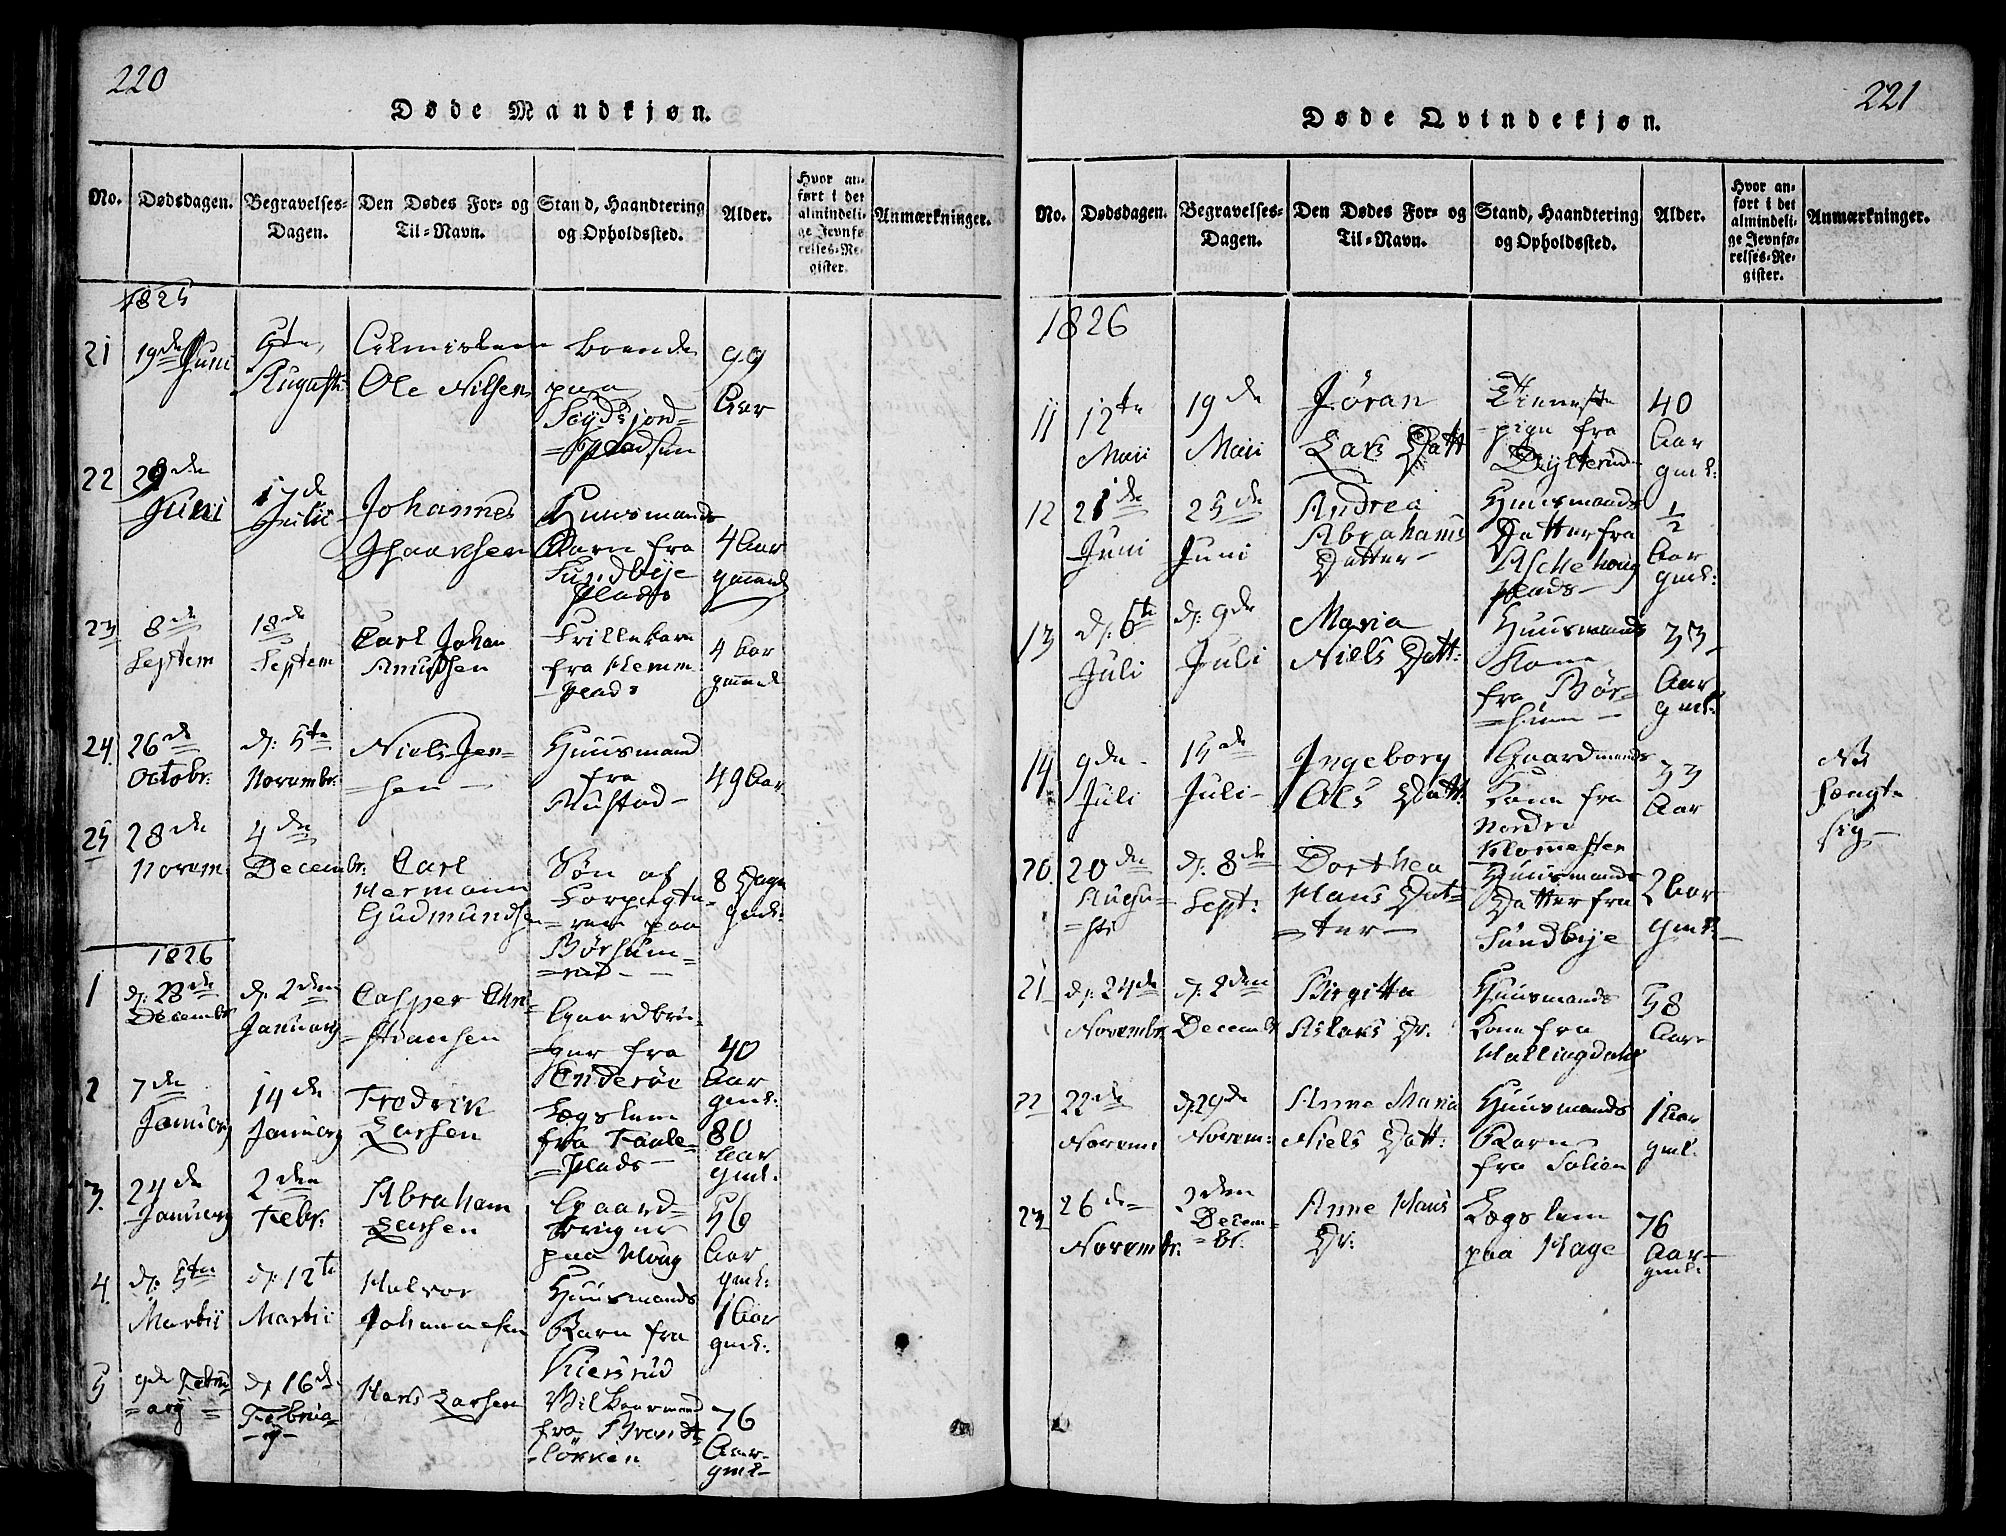 220
Døde Mandkjøn.
No.
Dødsdagen.
Begravelses-
Dagen.
Den Dødes For- og
Til-Navn.
Stand, Haandtering
og Opholdssted.
Alder.
Hvor an-
ført i det
almindeli-
ge Jevnfø-
relses-Re-
gister.
Anmærkninger.
1825
21
19de Juni
5te
Augusti
Almislem
Ole Nilsen
boende
paa
pladsen
99
Aar
22
29de
Juni
17de
Julii
Johannes
Isaaksen
Huusmands
Barn fra
Sundbye
plads
4 Aar
gammel
23
8de
Septem
18de
Septem
Carl Johan
Knudsen
Frillebarn
fra Klemm
plads
4 Aar
gammel
24.
26de
Octobr.
d: 5te
Novembr.
Niels Jen-
=sen
Huusmand
fra
Rustad
49 Aar
25
28de
Novem.
4de
Decembr.
Carl
Hermann
Gudmundsen
Søn af
Forpagte-
=ren paa
Børsum-
8 Dage
gml:
1826
1
d: 28de
Decembr
d: 2den
Januarij
Casper Chri-
=stiansen
Gaardbru-
=ger fra
Enderöe
40
Aar
gml:
2
7de
Januarij
14de
Januarij
Fredrik
Larsen
Lægslem
fra Foule-
=plads
80
Aar
gml.
3.
24de
Januarij
2den
Febr.
Abraham
Larsen
Gaard-
bruger
paa Houg
56
Aar
gml:
4.
d: 5te
Martii
d: 12te
Martii
Halvor
Johannesen
Huusmands
Barn fra
Kiersrud
1 Aar
gml:
5
9de Febru
=arij=
d: 16de
Februa-
Hans Larsen
Vilkaarmand
fra Brandt-
76
Aar
gml
221
Døde Qvindekjøn.
No.
Dødsdagen.
Begravelses-
Dagen.
Den Dødes For- og
Til-Navn.
Stand, Haandtering
og Opholdssted.
Alder.
Hvor an-
ført i det
almindeli-
ge Jevnfø-
relses-Re-
gister.
Anmærkninger.
1826
11
12te
Maii
19de
Maii
Jøran
Lars Datt
Tieneste
pige fra
Dylterud
40
Aar
gml:
12
21de
Juni
25de
Juni
Andrea
Abrahams
Datter
Huusmands
Datter fra
Aschehoug
plads
1/2
Aar
gml:
13
d: 6te
Juli
d: 9de
Juli
Maria
Niels Datt:
Huusmands
Kone
fra Bør-
=sum
33
Aar
gml.
14
9de
Juli
15de
Juli
Ingeborg
Ols Datt:
Gaardmands
Kone fra
Nordre
Klommesten
33
Aar
NB
hængte
sig
20.
20de
Augu-
=sti
d: 8de
Sept:
Dorthea
Hans Dat-
=ter
Huusmands
Datter fra
Sundbye
2 Aar
gml:
21
d: 24de
Novembr.
d: 2den
Decembr
Birgitta
Aslaks Dr.
Huusmands
Kone fra
Hallingdahl
58
Aar
22
22de
Novem:
d: 29de
Novem:
Anne Maria
Niels Datt:
Huusmands
Barn
fra Solien
1 Aar
gml.
23
26de
Novembr.
2den
Decem-
=br.
Anne Hans
Dr:
Lægslem
paa Hage
76
Aar
gml: